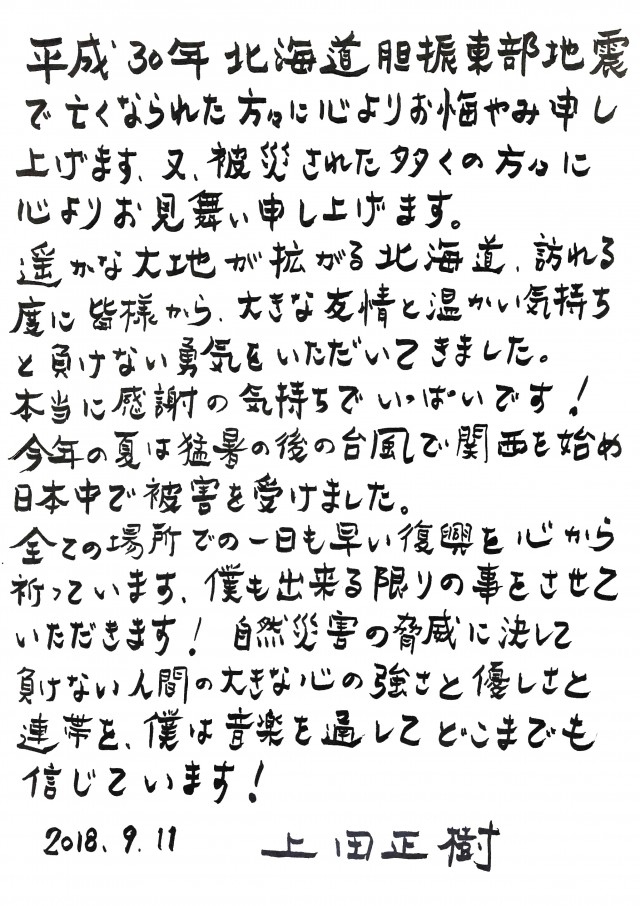 平成30年北海道胆振東部地震
で亡くなられた方々に心よりお悔やみ申し
上げます、又、被災された多くの方々に
心よりお見舞い申し上げます。
遥かな大地が拡がる北海道、訪れる
度に皆様から、大きな友情と温かい気持ち
と負けない勇気をいただいてきました。
本当に感謝の気持ちでいっぱいです!
今年の夏は猛暑の後の台風で関西を始め
日本中で被害を受けました。
全ての場所での一日も早い復興を心から
祈っています、僕も出来る限りの事をさせて
いただきます! 自然災害の脅威に決して
負けない人間の大きな心の強さと優しさと
連帯を、僕は音楽を通してどこまでも
信じています!
2018.9.11 上田正樹